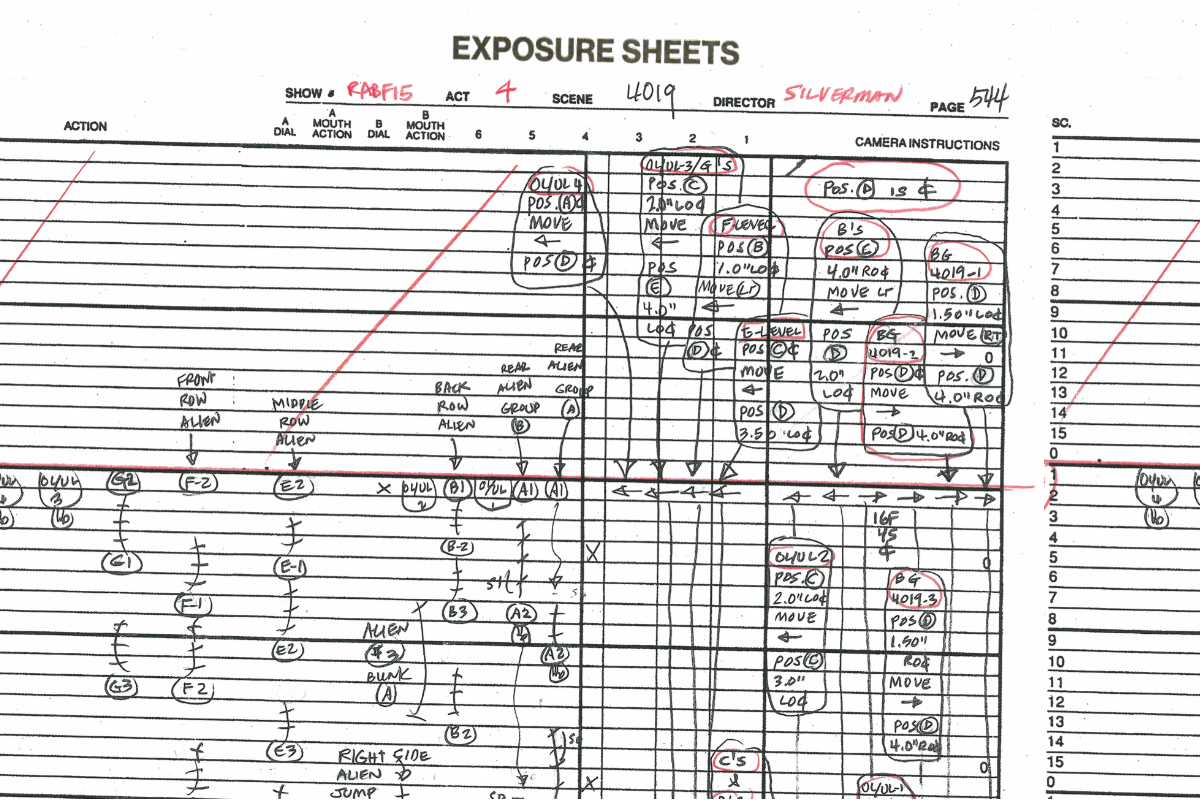 EXPOSURE SHEETS
SHOW RABF15 ACT 4 SCENE 4019 DIRECTOR SILVERMAN PAGE 544
ACTION A DIAL A MOUTH ACTION B DIAL B MOUTH ACTION 6 5 4 3 2 1 CAMERA INSTRUCTIONS
SC.
OL/UL 4
POS. A ¢
MOVE
←
POS D ¢
OL/UL-3/G'S
POS. C
2.0" LO¢
MOVE
←
POS
E
4.0"
LO¢
F LEVEL
POS B
1.0" LO¢
MOVE (LT)
←
POS
D ¢
E-LEVEL
POS C ¢
MOVE
←
POS D
3.50 LO¢
POS. D IS ¢
B'S
POS E
4.0" RO¢
MOVE LT
←
POS
D
2.0"
LO¢
BG
4019-2
POS D ¢
MOVE
→
POS D 4.0" RO¢
BG
4019-1
POS. D
1.50" LO¢
MOVE RT
→ 0
POS. D
4.0" RO¢
FRONT
ROW
ALIEN
MIDDLE
ROW
ALIEN
BACK
ROW
ALIEN
REAR
ALIEN
GROUP
B
REAR
ALIEN
GROUP
A
OL/UL 3 16 G2 F-2 E-2 X OL/UL 2 B1 O/UL 1 A1 A1
← ← ← ← ← ← → → → →
16F
¢
B-2
G1
E-1
X
0
F-1
B3
A2
E2
A2
16
ALIEN
#3
BUNK
A
G3
F2
B2
E3
RIGHT SIDE
ALIEN
JUMP
X
OL/UL-2
POS. C
2.0" LO¢
MOVE
←
POS C
3.0"
LO¢
BG
4019-3
POS D
1.50"
RO¢
MOVE
→
POS D
4.0" RO¢
0
C'S
&
OL/UL-1
1
2
3
4
5
6
7
8
9
10
11
12
13
14
15
0
1
2
3
4
5
6
7
8
9
10
11
12
13
14
15
0
1
OL/UL
4
16